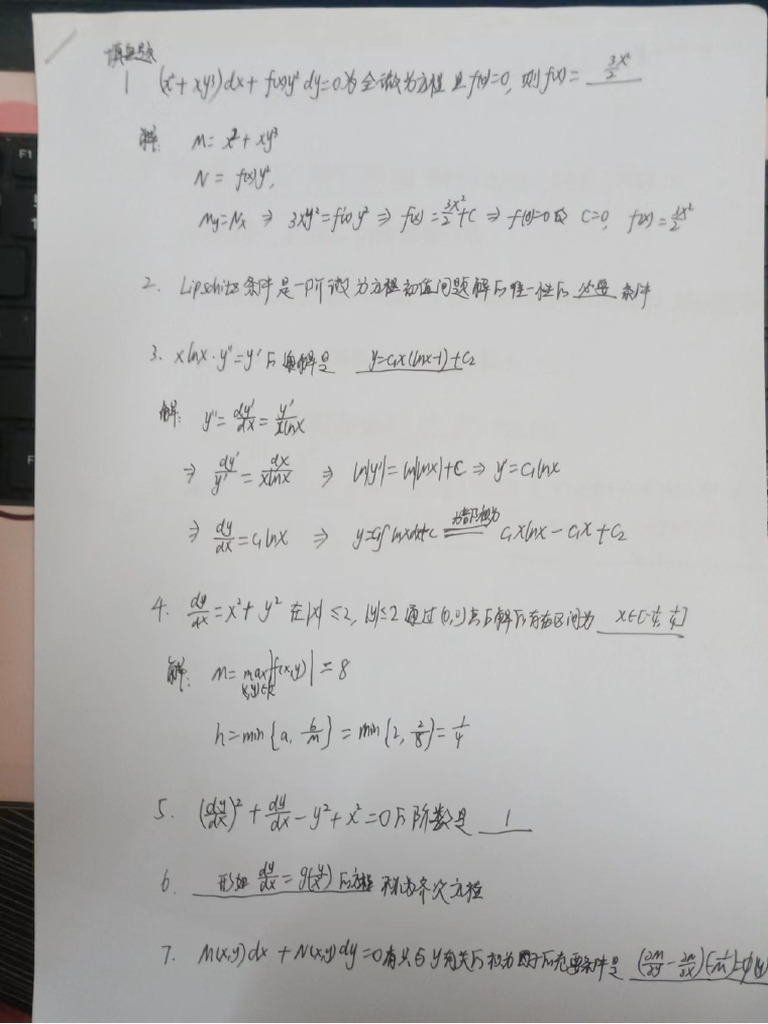 填空题
1 (x²+xy³)dx+f(x)y²dy=0为全微分方程且f(0)=0,则f(x)= 3x²/2
解: M=x²+xy³
N=f(x)y²,
My=Nx ⇒ 3xy²=f'(x)y² ⇒ f(x)=3x²/2+C ⇒ f(0)=0故 C=0, f(x)=3x²/2
2. Lipschitz条件是一阶微分方程初值问题解的唯一性的 必要 条件
3. xlnx·y''=y'的通解是 y=C₁x(lnx-1)+C₂
解: y''=dy'/dx=y'/xlnx
⇒ dy'/y'=dx/xlnx ⇒ ln|y'|=ln|lnx|+C ⇒ y'=C₁lnx
⇒ dy/dx=C₁lnx ⇒ y=C₁∫lnxdx+C 分部积分 C₁xlnx-C₁x+C₂
4. dy/dx=x²+y² 在|x|≤2,|y|≤2通过(0,0)点的解的存在区间为 x∈[-1/4,1/4]
解: M=max|f(x,y)|=8
(x,y)∈R
h=min{a,b/M}=min{2,2/8}=1/4
5. (dy/dx)²+dy/dx-y²+x²=0的阶数是 1
6. 形如dy/dx=g(y/x)的方程 称为齐次方程
7. M(x,y)dx+N(x,y)dy=0有只与y有关的积分因子的充要条件是 (∂M/∂y-∂N/∂x)(-1/M)=φ(y)